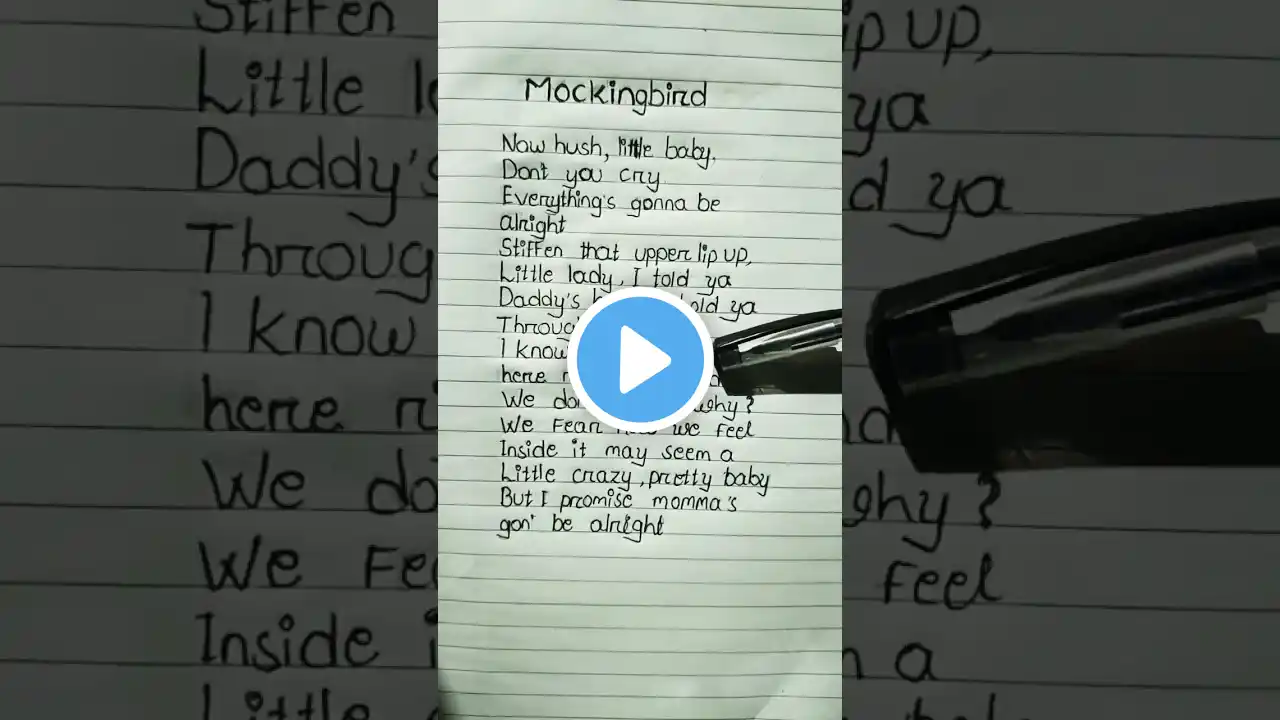 Mockingbird
Now hush, little baby.
Don't you cry
Everything's gonna be
alright
Stiffen that upper lip up,
Little lady, I told ya
Daddy's told ya
I know
here
We why?
We fear we feel
Inside it may seem a
Little crazy, pretty baby
But I promise momma's
gon' be alright